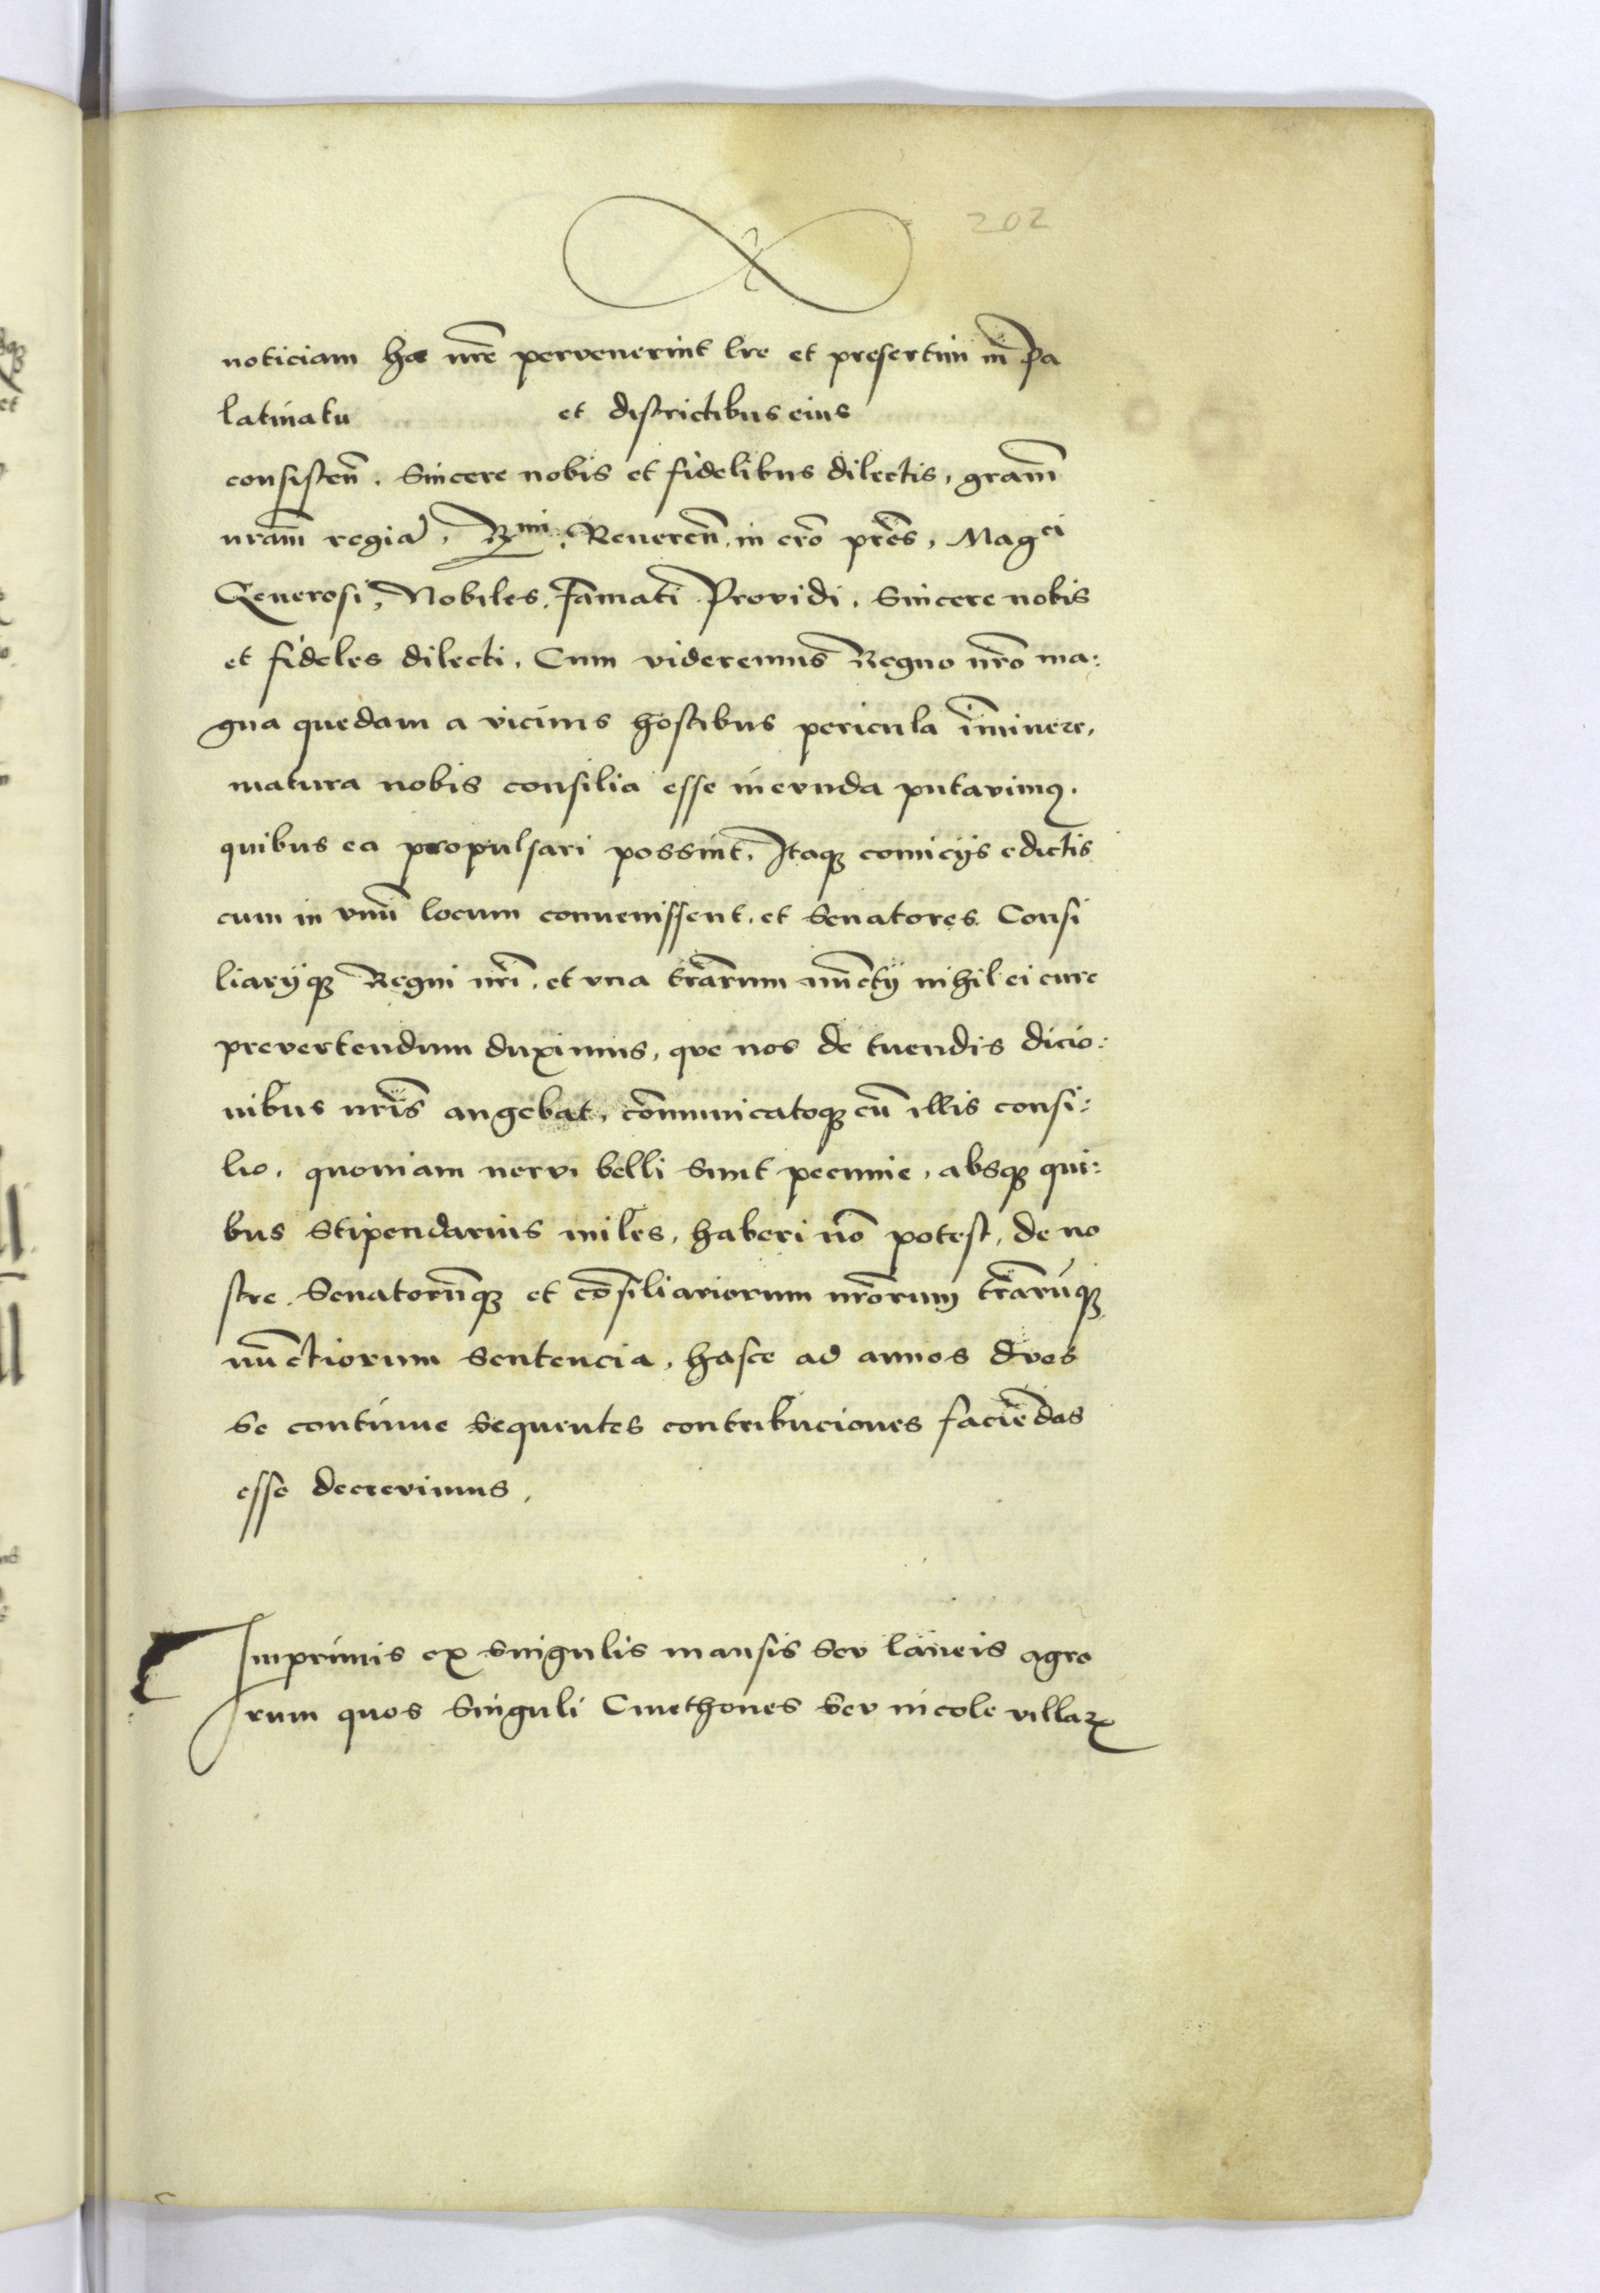 202
noticiam he nr̃e pervenerint lr̃e et presertim in Pa
latinatu et districtibus eius
consisteñ. Sincere nobis et fidelibus dilectis, gram̃
nram̃ regia͂. R.mi. Revereñ. in cr̃o pr̃es, Mag.ci
Generosi, Nobiles, Famati Providi, Sincere nobis
et fideles dilecti. Cum videremus Regno nr̃o ma:
gna quedam a vicinis hostibus pericula im̃inere,
matura nobis consilia esse ineunda putavimꝰ.
quibus ea propulsari possint, Itaqꝫ comicijs edictis
cum in vnũ locum convenissent, et Senatores Consi
liarijqꝫ Regni nr̃i, et vna tr̃arum nũctij nihil ei cure
prevertendum duximus, que nos de tuendis dicio:
nibus nr̃is angebat, com̃unicatoqꝫ cũ illis consi:
lio, quoniam nervi belli sunt pecunie, absqꝫ qui:
bus Stipendarius miles, haberi nõ potest, de no
stre Senatorũqꝫ et cõsiliariorum nr̃orum tr̃arũqꝫ
nũctiorum Sentencia, hasce ad annos duos
se continue sequentes contribuciones faciẽdas
esse decrevimus,
Imprimis ex singulis mansis seu laneis agro
rum quos singuli Cmethones seu incole villaꝝ